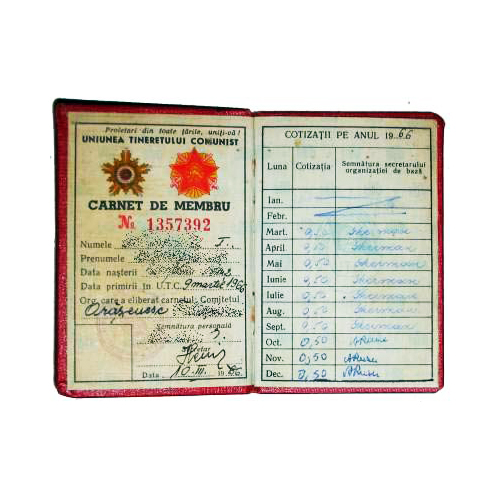 Proletari din toate țările, uniți-vă!
UNIUNEA TINERETULUI COMUNIST
CARNET DE MEMBRU
No 1357392
Numele
Prenumele
Data nașterii
Data primirii în U.T.C. 9 martie 1966
Org. care a eliberat carnetul, Comitetul
Orășenesc
Semnătura personală
Data 10.III. 1966
COTIZAȚII PE ANUL 1966
Luna Cotizația Semnătura secretarului organizației de bază
Ian.
Febr.
Mart. 0,50
April. 0,50
Mai 0,50
Iunie 0,50
Iulie 0,50
Aug. 0,50
Sept. 0,50
Oct. 0,50
Nov. 0,50
Dec. 0,50